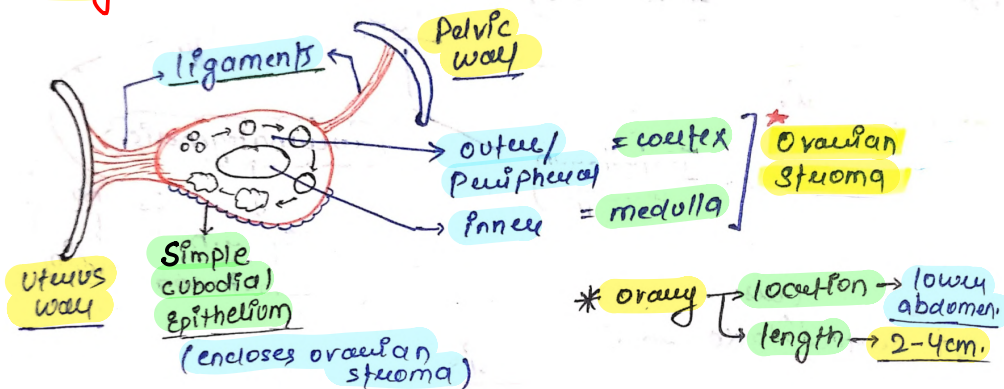 Pelvic
wall
ligaments
outer/
Peripheral
= cortex
Ovarian
Stroma
inner
= medulla
Uterus
wall
Simple
cubodial
Epithelium
(encloses ovarian
stroma)
* Ovary
location → lower
abdomen.
length → 2-4cm.